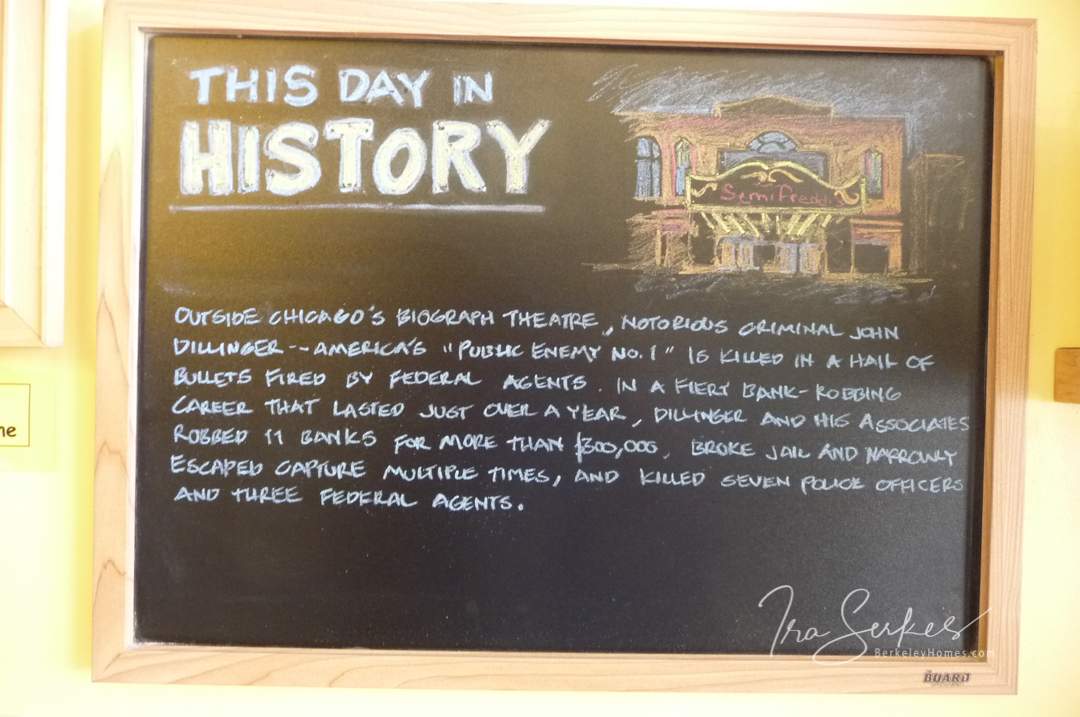 THIS DAY IN
HISTORY
Semifreddi
OUTSIDE CHICAGO'S BIOGRAPH THEATRE, NOTORIOUS CRIMINAL JOHN
DILLINGER--AMERICA'S "PUBLIC ENEMY NO. 1" IS KILLED IN A HAIL OF
BULLETS FIRED BY FEDERAL AGENTS. IN A FIERY BANK-ROBBING
CAREER THAT LASTED JUST OVER A YEAR, DILLINGER AND HIS ASSOCIATES
ROBBED 11 BANKS FOR MORE THAN $300,000, BROKE JAIL AND NARROWLY
ESCAPED CAPTURE MULTIPLE TIMES, AND KILLED SEVEN POLICE OFFICERS
AND THREE FEDERAL AGENTS.
Ira Serkes
BerkeleyHomes.com
BOARD